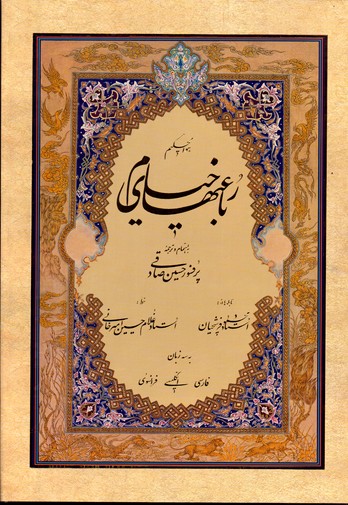 هوالحکیم
رباعیهای خیام
باهتمام و ترجمهٔ
پرفسور حسین صادقی
خط:
استاد محمود فرشچیان استاد غلامحسین امیرخانی
به سه زبان
فارسی انگلیسی فرانسوی